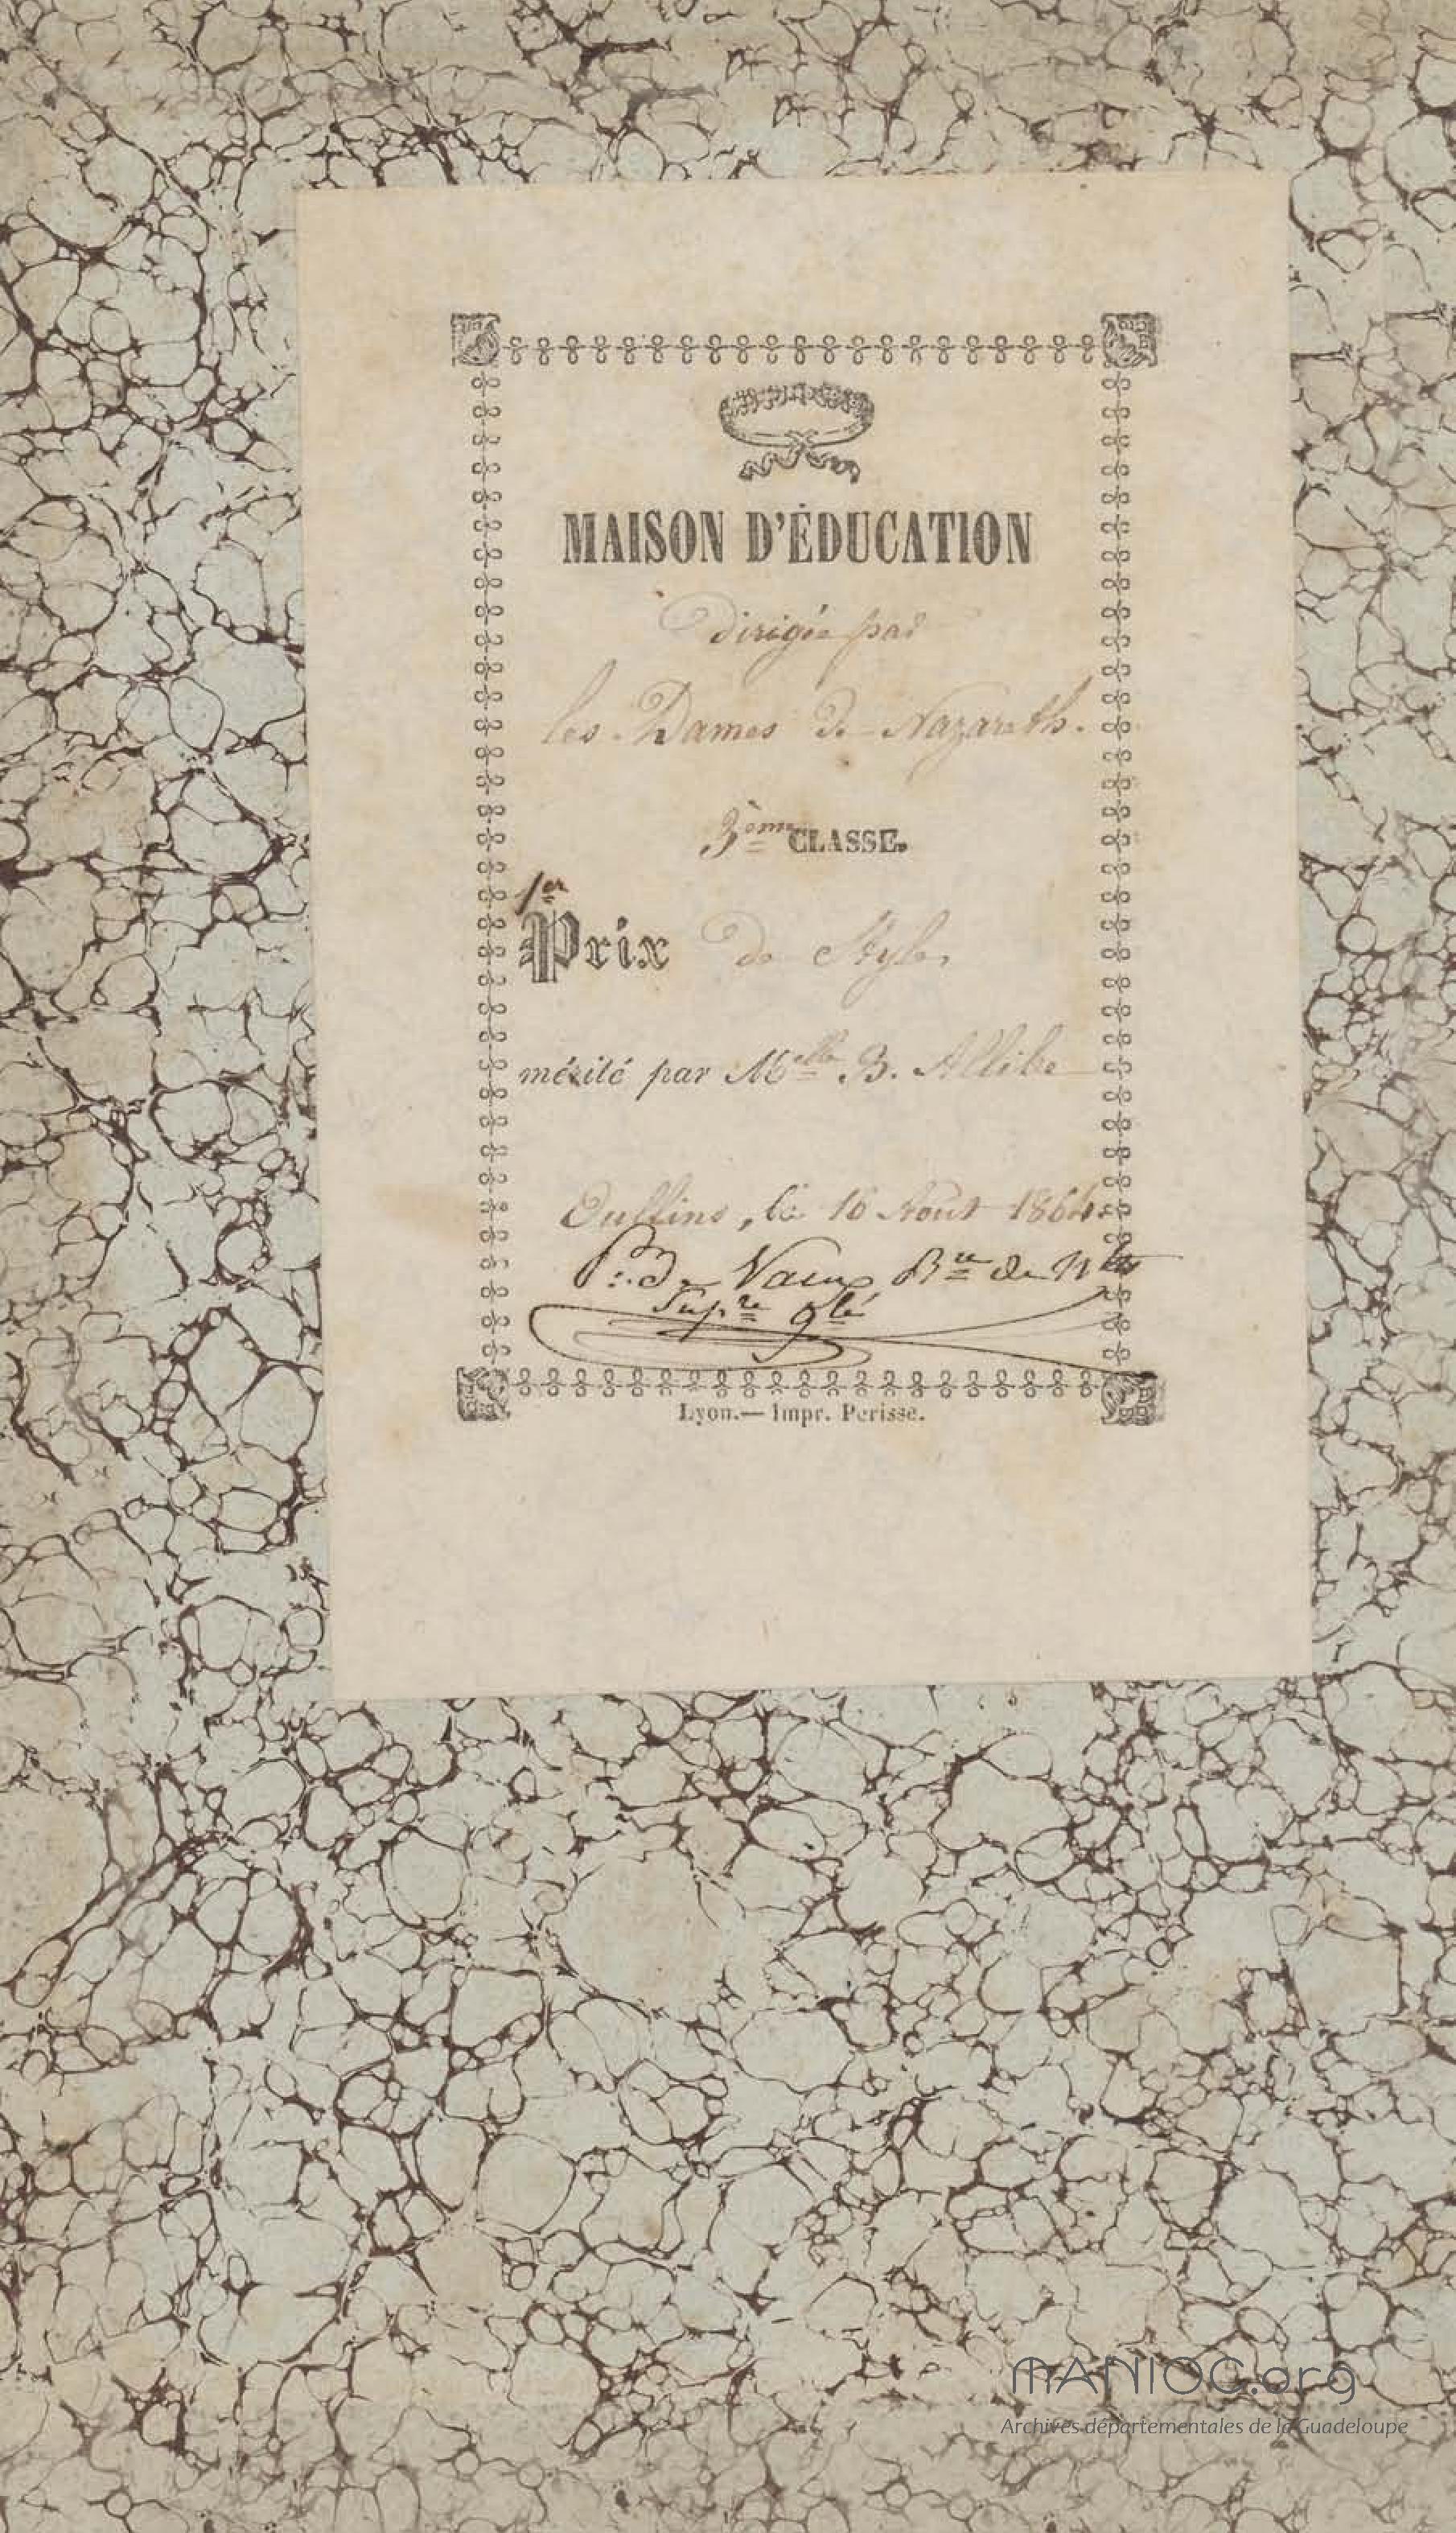 MAISON D'ÉDUCATION
dirigée par
les Dames de Nazareth.
3ème CLASSE.
1er
Prix de Style,
mérité par Melle B. Allibe
Oullins, le 16 Août 1864.
de Vaux
Supre glé
Lyon.— Impr. Perisse.
MANIOC.org
Archives départementales de la Guadeloupe